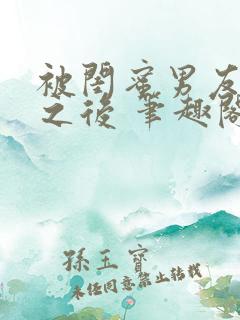 被閨蜜男友
之後 筆趣閣
孫玉寶
未經同意禁止转载